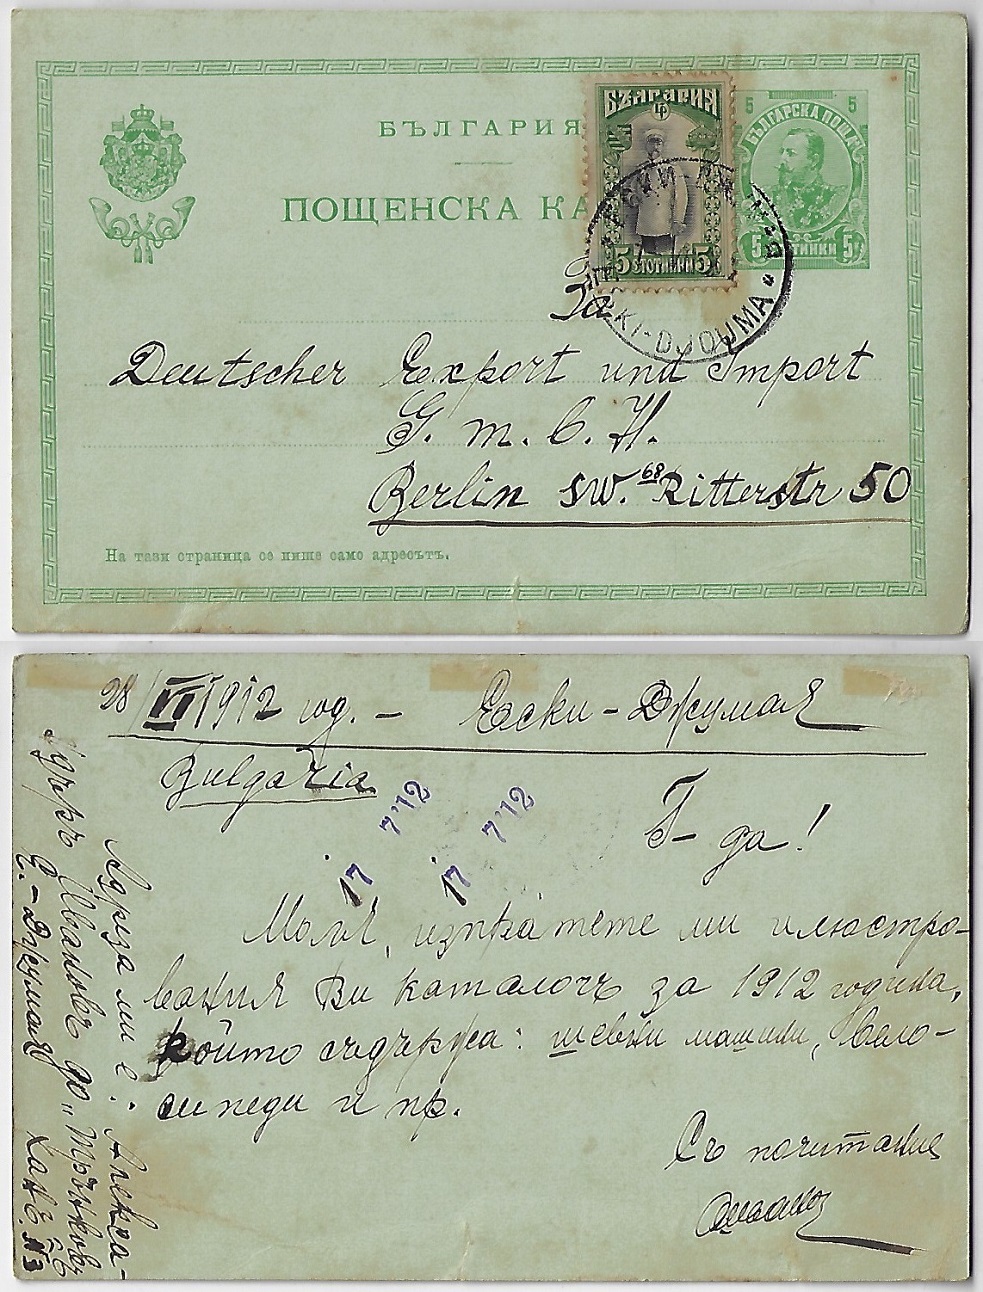 БЪЛГАРИЯ
ПОЩЕНСКА КА
БЪЛГАРИЯ
5 СТОТИНКИ 5
5 5
БЪЛГАРСКА ПОЩА
5 СТОТИНКИ 5
ESKI-DJOUMA
За
Deutscher Export und Import
G. m. b. H.
Berlin SW. 68 Ritterstr 50
На тази страница се пише само адресътъ.
28/VI 1912 год. – Ески-Джумая
Bulgaria
17 7 '12
17 7 '12
Г-да!
Моля, изпратете ми илюстро-
вания Ви каталогъ за 1912 година,
който съдържа: шевни машини, вело-
сипеди и пр.
Съ почитание
Адреза ми е: Алекса-
ндъръ Ивановъ до „Трънковъ
Е.-Джумая ханъ" №3